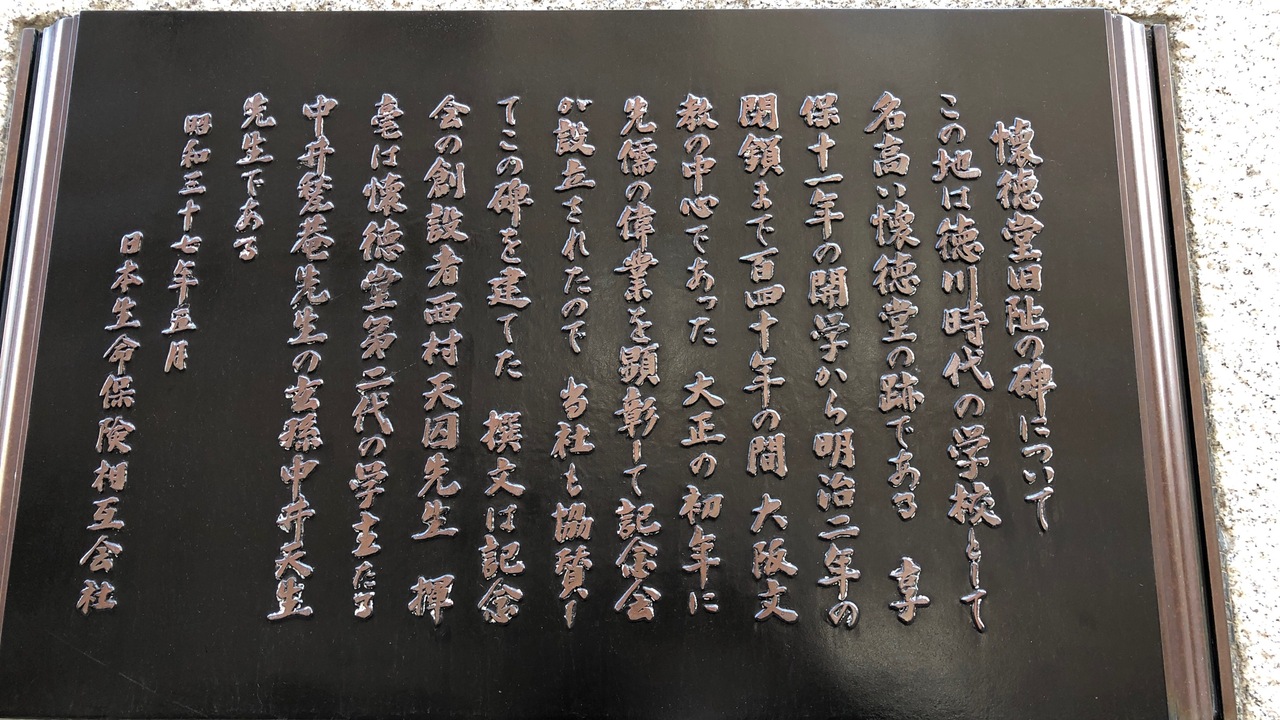 懐徳堂旧阯の碑について
この地は徳川時代の学校として
名高い懐徳堂の跡である　享
保十一年の開学から明治二年の
閉鎖まで百四十年の間　大阪文
教の中心であった　大正の初年に
先儒の偉業を顕彰して記念会
が設立されたので　当社も協賛し
てこの碑を建てた　撰文は記念
会の創設者西村天囚先生　揮
毫は懐徳堂第二代の学主たる
中井甃菴先生の玄孫中井天生
先生である
昭和三十七年五月
日本生命保険相互会社